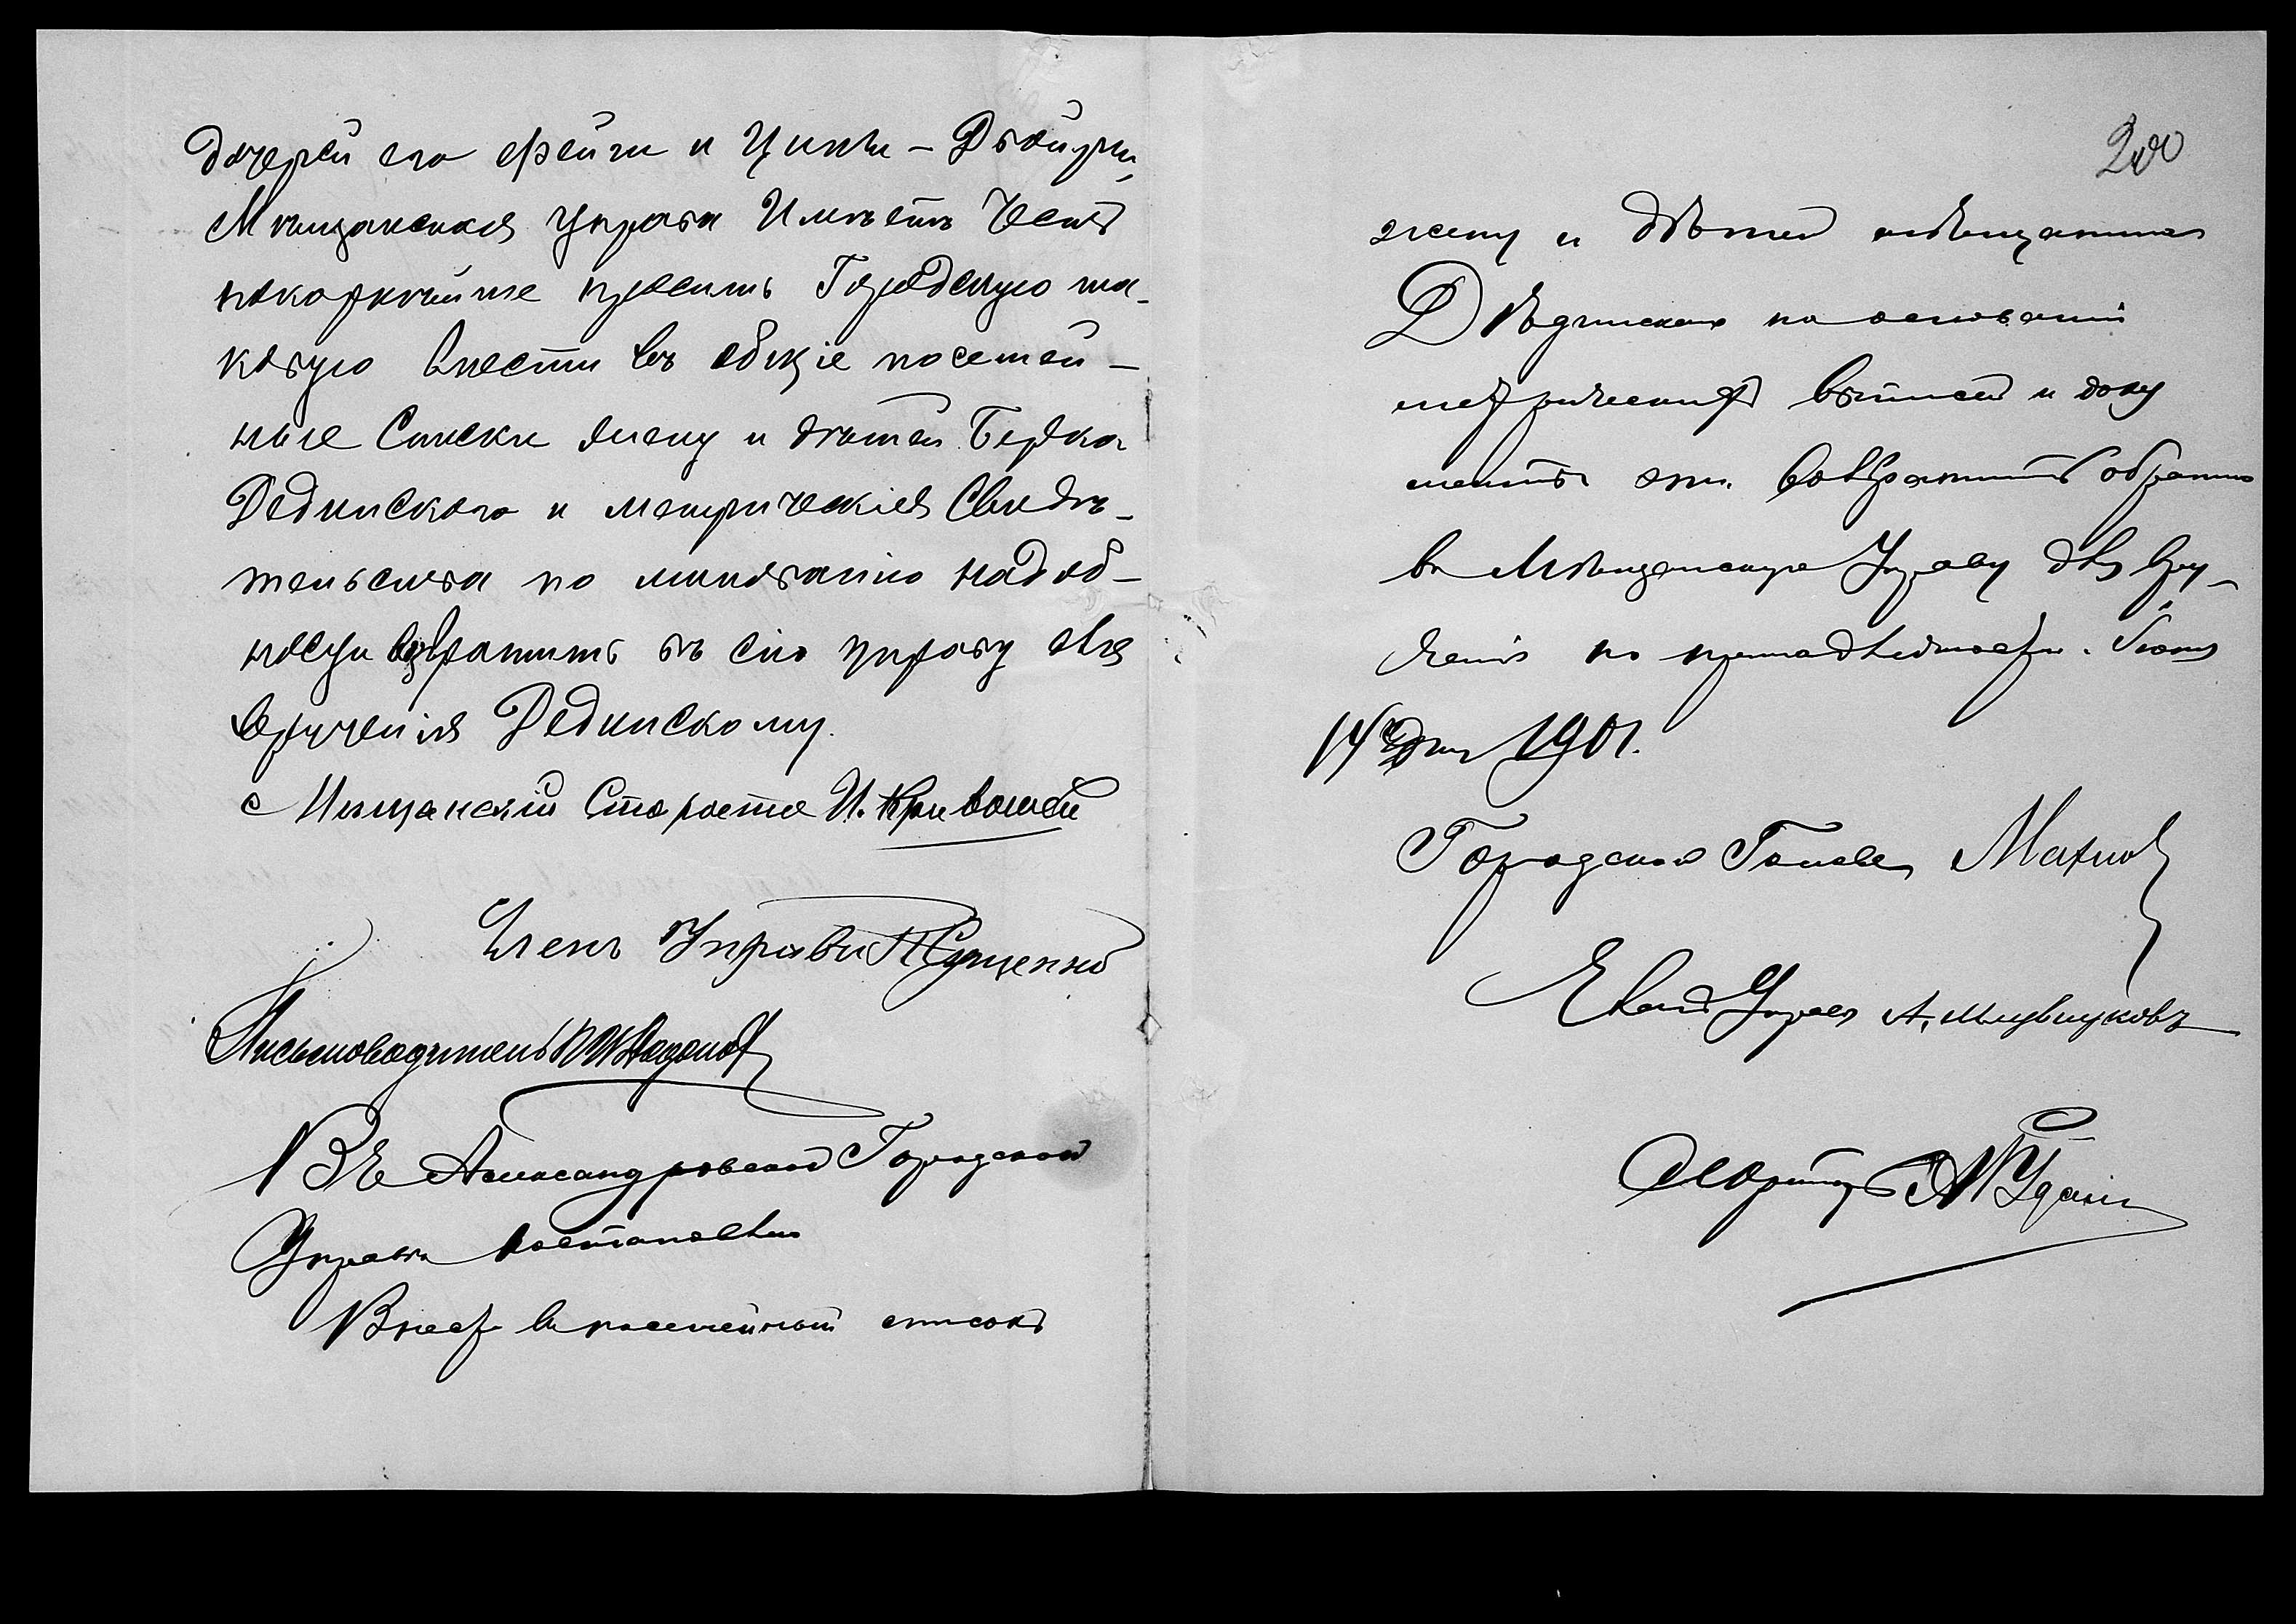 дочерей его Фейги и Ципы-Двойры,
Мѣщанская Управа Имѣетъ Честь
покорнѣйше просить Городскую та-
ковую внести въ общіе посемей-
ные Списки жену и дѣтей Берка
Дединскаго и метрическія Свидѣ-
тельства по минованіи надоб-
ности возвратить въ сію управу для
врученія Дединскому.
Мѣщанскій Староста И. Кривошей
Членъ Управы
Письмоводитель
Въ Александровской Городской
Управѣ постановлено
Внести въ посемейный списокъ
200
жену и дѣтей мѣщанина
Дѣдинскаго на основаніи
метрическихъ выписей и доку
менты эти возвратить обратно
въ Мѣщанскую Управу для вру-
ченія по принадлежности. Іюня
14 дня 1901.
Городской Голова Махно
Членъ Управы А.
Секретарь